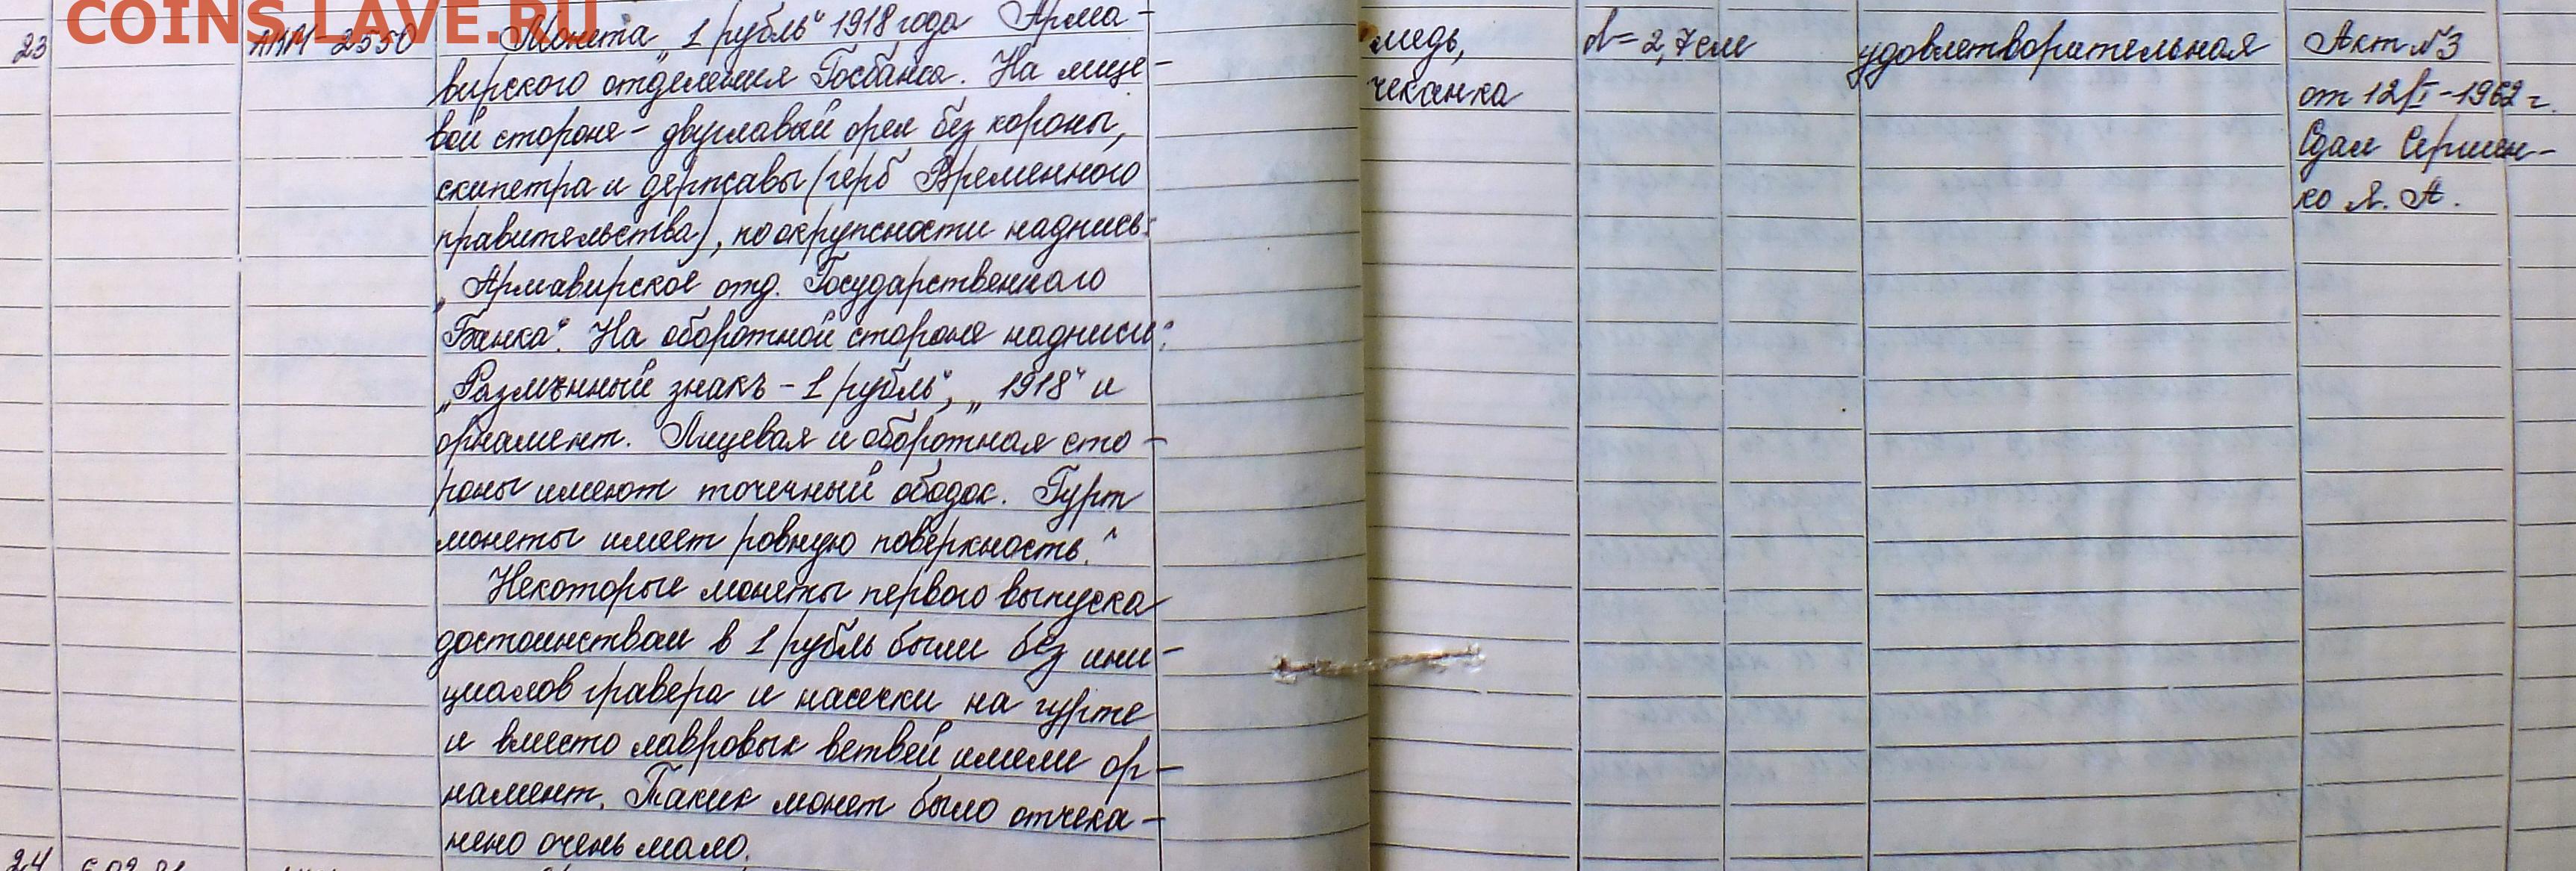 COINS.LAVE.RU
23
АКМ-2550
Монета „1 рубль“ 1918 года Арма-
вирского отделения Госбанка. На лице-
вой стороне - двуглавый орел без короны,
скипетра и державы (герб Временного
правительства), по окружности надпись:
„Армавирское отд. Государственного
Банка“. На оборотной стороне надписи:
„Размѣнный знакъ - 1 рубль“, „1918“ и
орнамент. Лицевая и оборотная сто-
роны имеют точечный ободок. Гурт
монеты имеет ровную поверхность.
Некоторые монеты первого выпуска
достоинством в 1 рубль были без ини-
циалов гравера и насечки на гурте
и вместо лавровых ветвей имели ор-
намент. Таких монет было отчека-
нено очень мало.
медь,
чеканка
d=2,7см
удовлетворительная
Акт №3
от 12/I-1962 г.
Сдал
ко А. А.
24